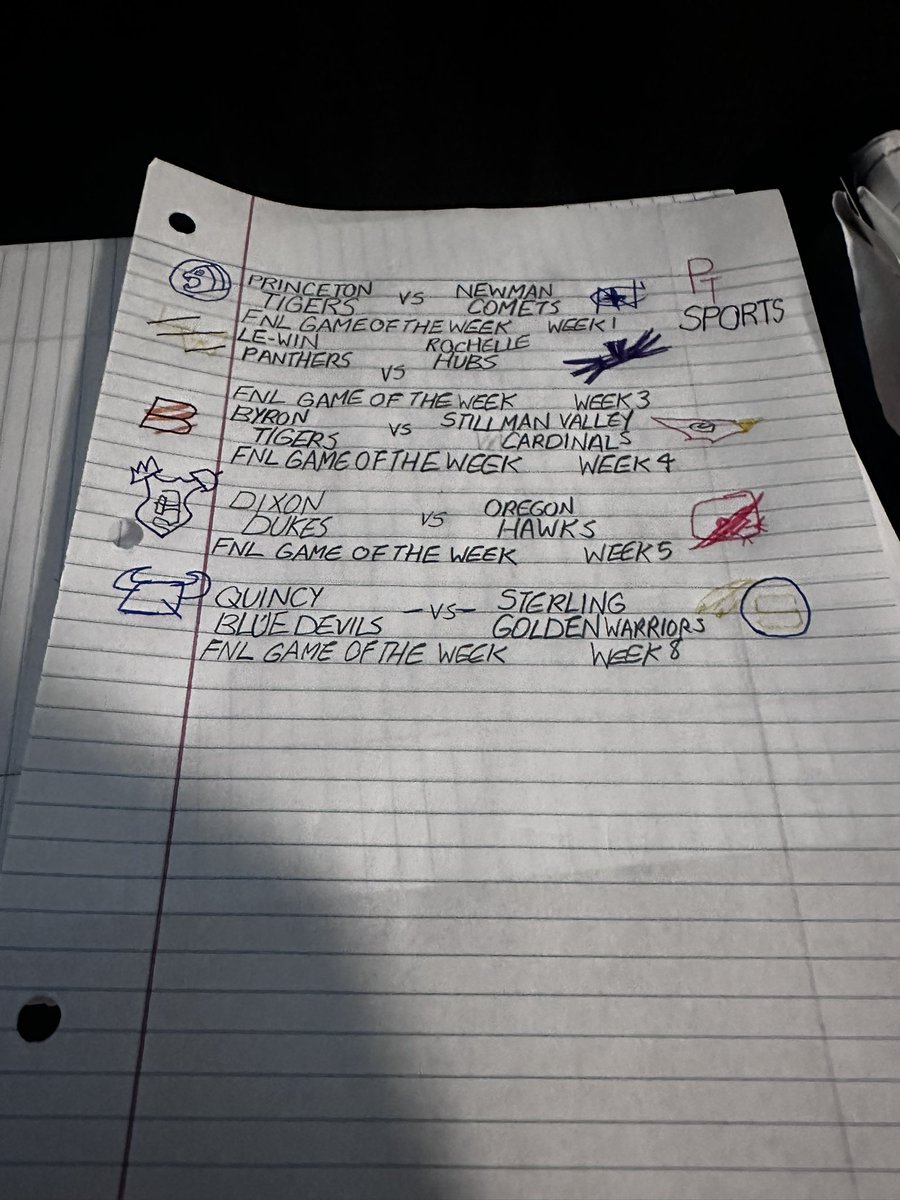 PRINCETON VS NEWMAN PT
TIGERS COMETS SPORTS
FNL GAME OF THE WEEK WEEK 1
LE-WIN ROCHELLE
PANTHERS VS HUBS
FNL GAME OF THE WEEK WEEK 3
BYRON VS STILLMAN VALLEY
TIGERS CARDINALS
FNL GAME OF THE WEEK WEEK 4
DIXON VS OREGON
DUKES HAWKS
FNL GAME OF THE WEEK WEEK 5
QUINCY -VS- STERLING
BLUE DEVILS GOLDEN WARRIORS
FNL GAME OF THE WEEK WEEK 8